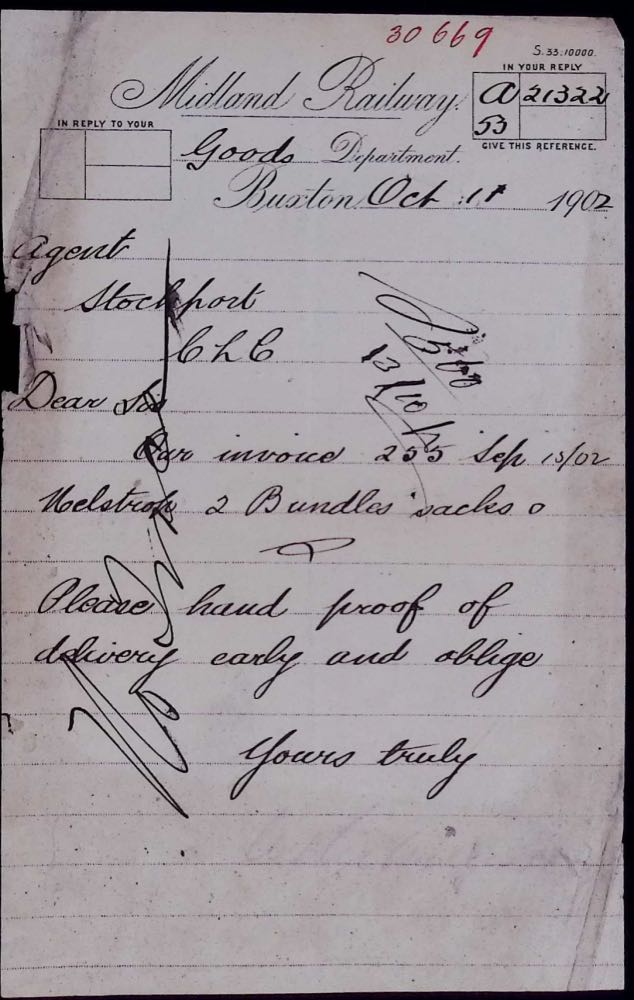 30669
S.33.10000.
IN YOUR REPLY
A 21322
53
GIVE THIS REFERENCE.
Midland Railway.
IN REPLY TO YOUR
Goods Department.
Buxton Oct 11 1902
Agent
Stockport
C L C
Dear Sir
Our invoice 255 Sep 15/02
2 Bundles sacks o
Please hand proof of
delivery early and oblige
Yours truly
13/10/2